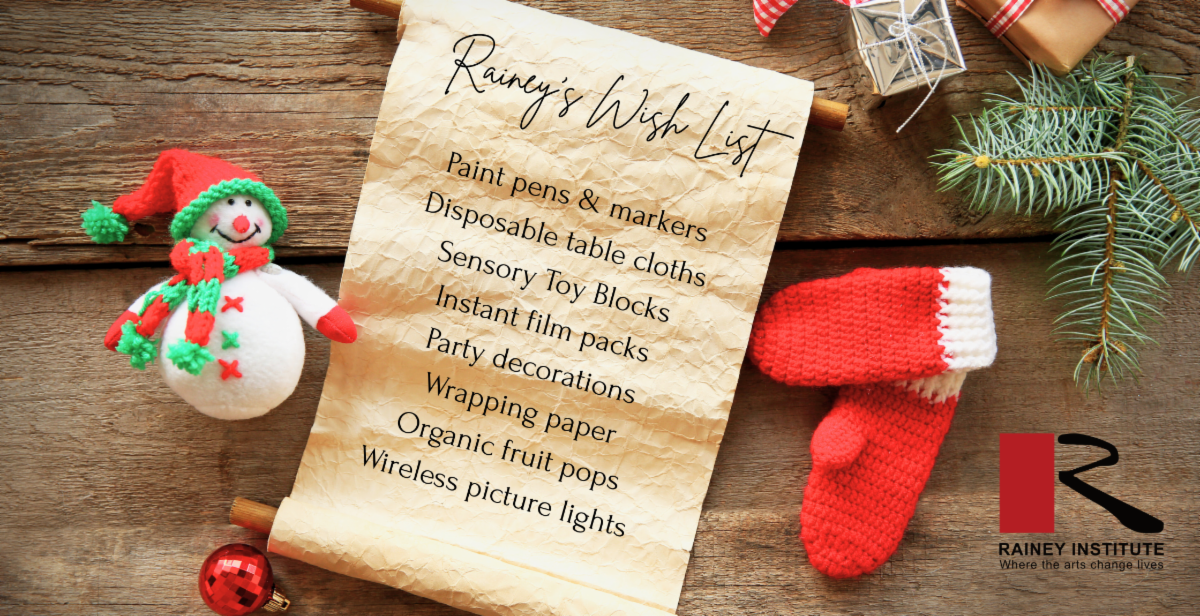 Rainey's Wish List
Paint pens & markers
Disposable table cloths
Sensory Toy Blocks
Instant film packs
Party decorations
Wrapping paper
Organic fruit pops
Wireless picture lights
R
RAINEY INSTITUTE
Where the arts change lives